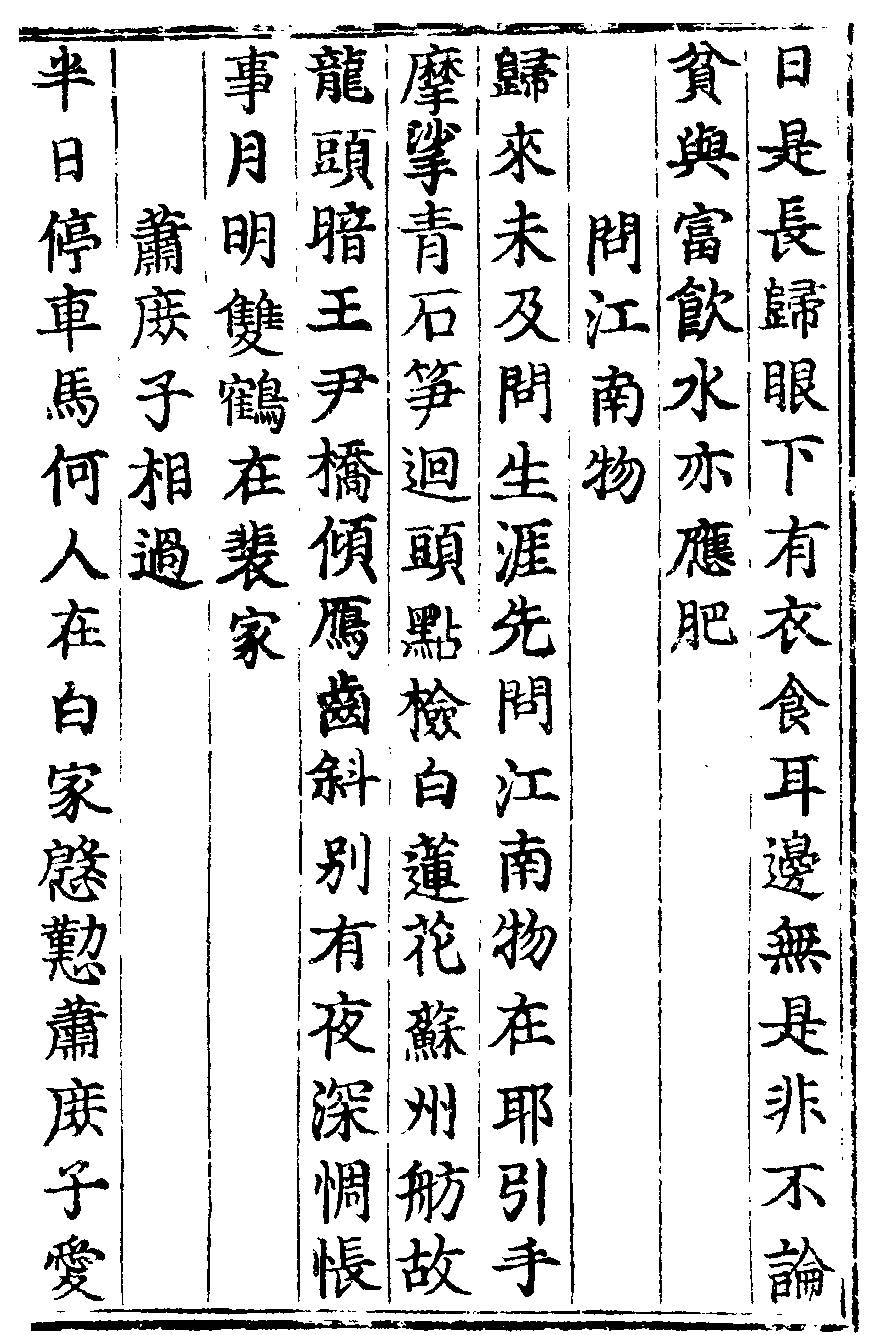 日是長歸眼下有衣食耳邊無是非不論
貧與富飲水亦應肥
問江南物
歸來未及問生涯先問江南物在耶引手
摩挲青石筍迴頭點檢白蓮花蘇州舫故
龍頭暗王尹橋傾鴈齒斜别有夜深惆悵
事月明雙鶴在裴家
蕭庻子相過
半日停車馬何人在白家慇懃蕭庻子愛